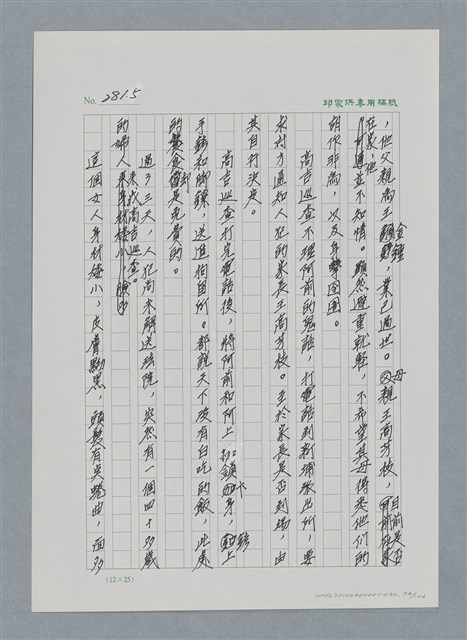 No. 2815
邱家洪專用稿紙
，他父親高王金鐘，業已過世。母親王高芳枝，目前是否
在家，他並不知情。顯然避重就輕，不希望其母得悉他們的
胡作非為，以及身繫囹圄。
高吉巡查不理阿前的鬼話，打電話到新埔派出所，要
求對方通知人犯的家長王高芳枝。至於家長是否到場，由
其自行決定。
高吉巡查打完電話後，將阿前和阿上加鎖卡車，上
手銬和腳鐐，送進拘留所。都說天下沒有白吃的飯，此處
的餐食卻是免費的。
過了三天，人犯尚未解送法院，突然有一個四十多歲
的婦人來找高吉巡查。
這個女人身材矮小，皮膚黝黑，頭髮有些蜷曲，面多
(12×25)